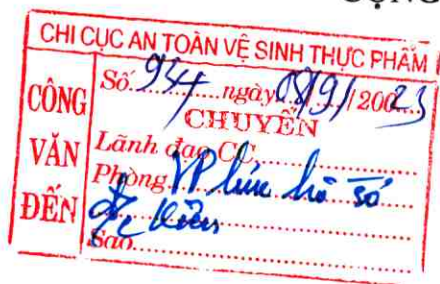 CỘNG
CHI CỤC AN TOÀN VỆ SINH THỰC PHẨM
CÔNG VĂN ĐẾN
Số 944 ngày 08/9/20023
CHUYỂN
Lãnh đạo CC
Phòng VP lưu hồ sơ
Sao